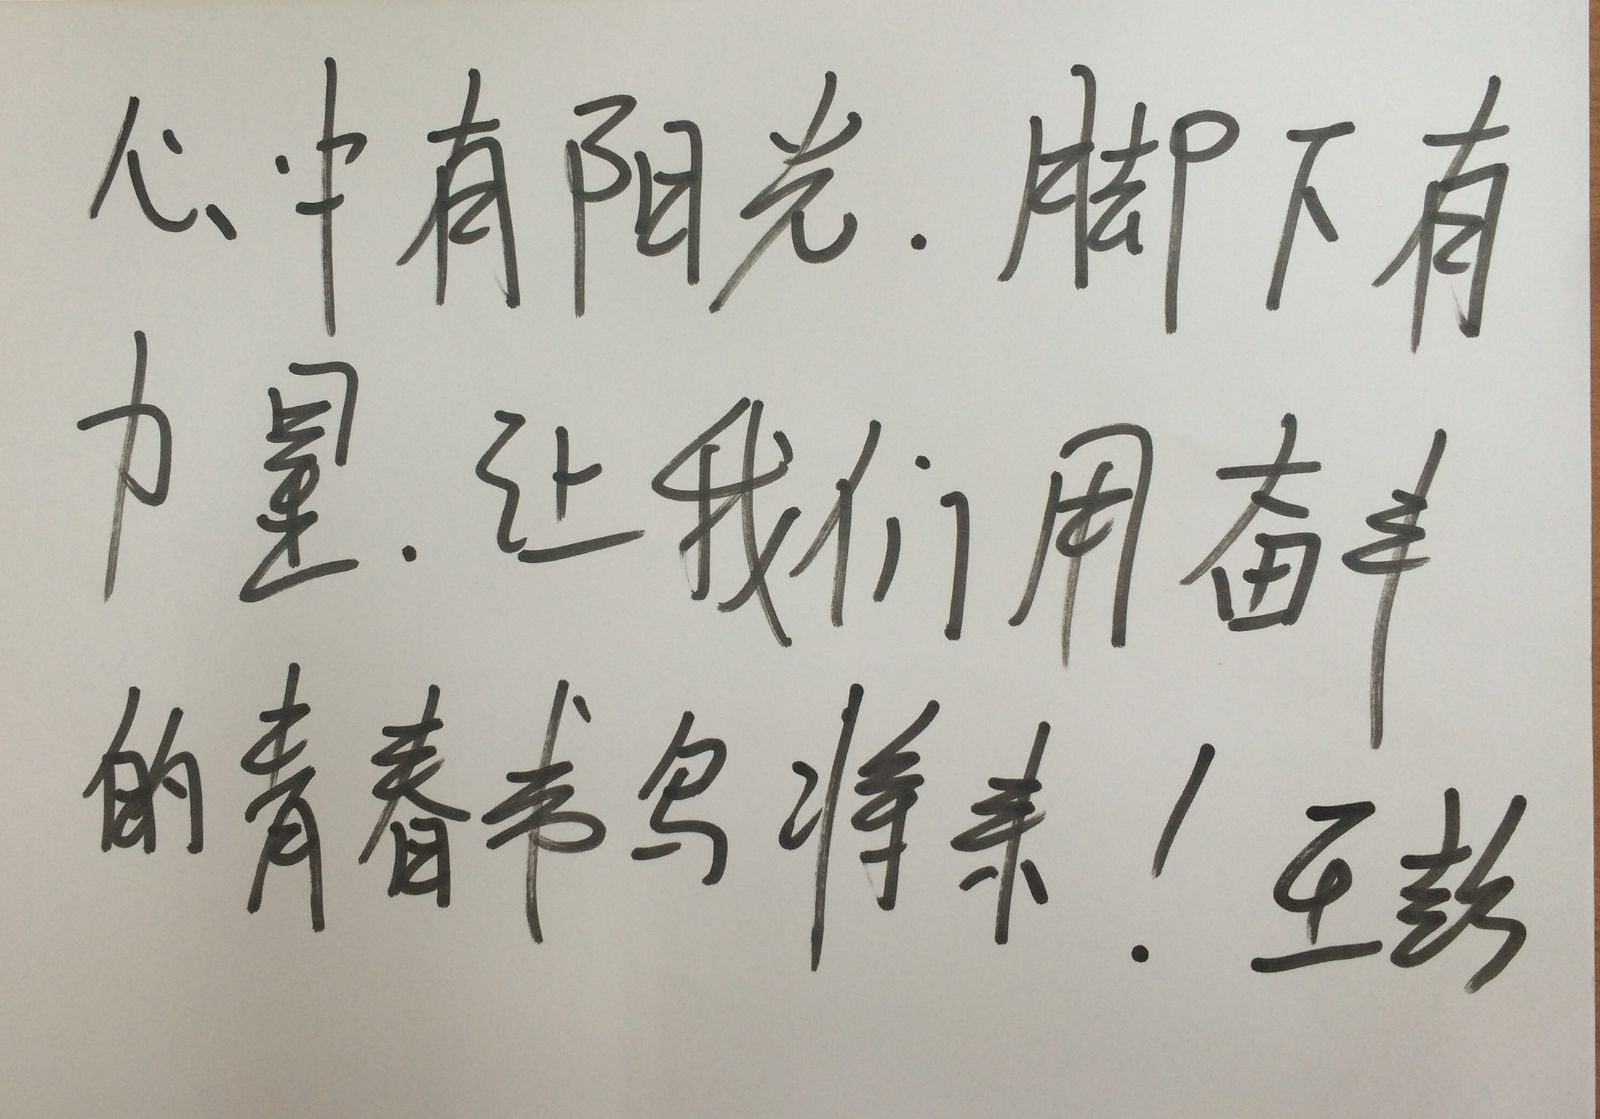 心中有阳光.脚下有
力量.让我们用奋斗
的青春书写将来！王彭